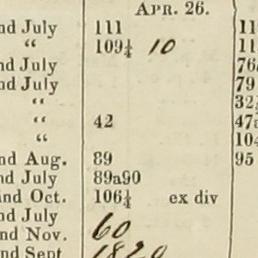 APR. 26.
nd July 111 11
“ 109¼ 10 10
nd July 76
nd July 79
“ 32
“ 42 47
“ 104
nd Aug. 89 95
nd July 89a90
and Oct. 106¼ ex div
nd July 60
nd Nov.
nd Sept